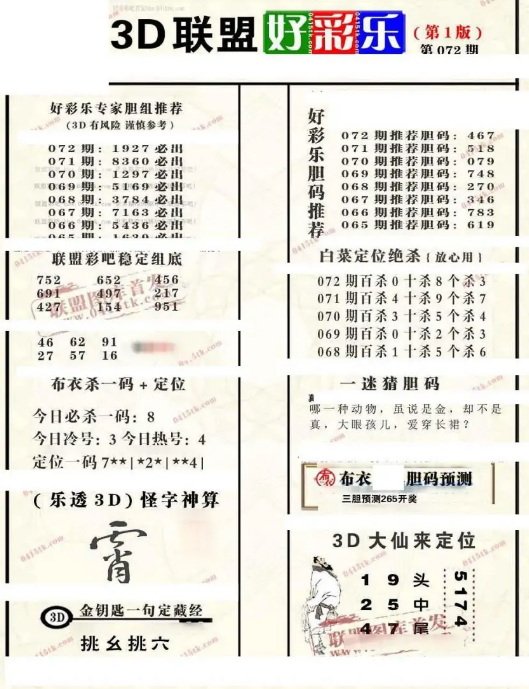 3D联盟好彩乐
(第1版)
第072期
好彩乐专家胆组推荐
(3D有风险 谨慎参考)
072期: 1927必出
071期: 8360必出
070期: 1297必出
069期: 5169必出
068期: 3784必出
067期: 7163必出
066期: 5436必出
065期: 1639必出
联盟彩吧稳定组底
752 652 456
691 497 217
427 154 951
46 62 91
27 57 16
布衣杀一码+定位
今日必杀一码: 8
今日冷号: 3 今日热号: 4
定位一码 7**|*2*|**4|
(乐透3D)怪字神算
霄
3D 金钥匙一句定藏经
挑幺挑六
好彩乐胆码推荐
072期推荐胆码: 467
071期推荐胆码: 518
070期推荐胆码: 079
069期推荐胆码: 748
068期推荐胆码: 270
067期推荐胆码: 346
066期推荐胆码: 783
065期推荐胆码: 619
白菜定位绝杀{放心用}
072期百杀0十杀8个杀3
071期百杀4十杀9个杀7
070期百杀3十杀5个杀4
069期百杀0十杀2个杀3
068期百杀1十杀5个杀6
一迷猜胆码
哪一种动物, 虽说是金, 却不是
真, 大眼孩儿, 爱穿长裙?
布衣 胆码预测
三胆预测265开奖
3D大仙来定位
1 9 头
2 5 中
4 7 尾
5174
联盟图库首发
0415tk.com